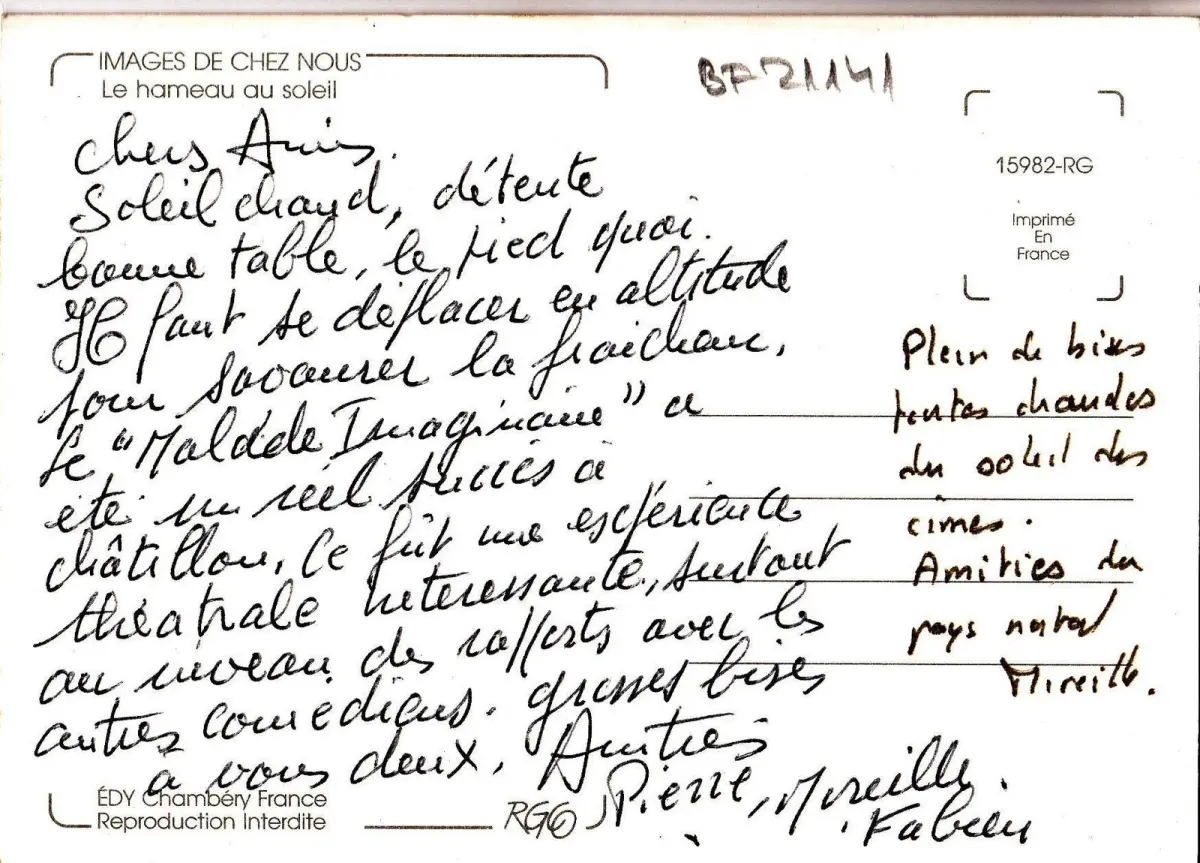 IMAGES DE CHEZ NOUS
Le hameau au soleil
BF 21141
15982-RG
Imprimé
En
France
Chers Amis.
Soleil chaud, détente
bonne table, le pied quoi.
Il faut se déplacer en altitude
pour savourer la fraicheur.
Le "Malade Imaginaire" a
été un réel succès à
châtillon. Ce fut une expérience
théatrale interessante, surtout
au niveau des rapports avec les
autres comediens. grosses bises
à vous deux, Amitiés
Pierre, Mireille.
Fabien
Plein de bises
toutes chaudes
du soleil des
cimes.
Amitiés du
pays natal
Mireille.
ÉDY Chambéry France
Reproduction Interdite
RGG